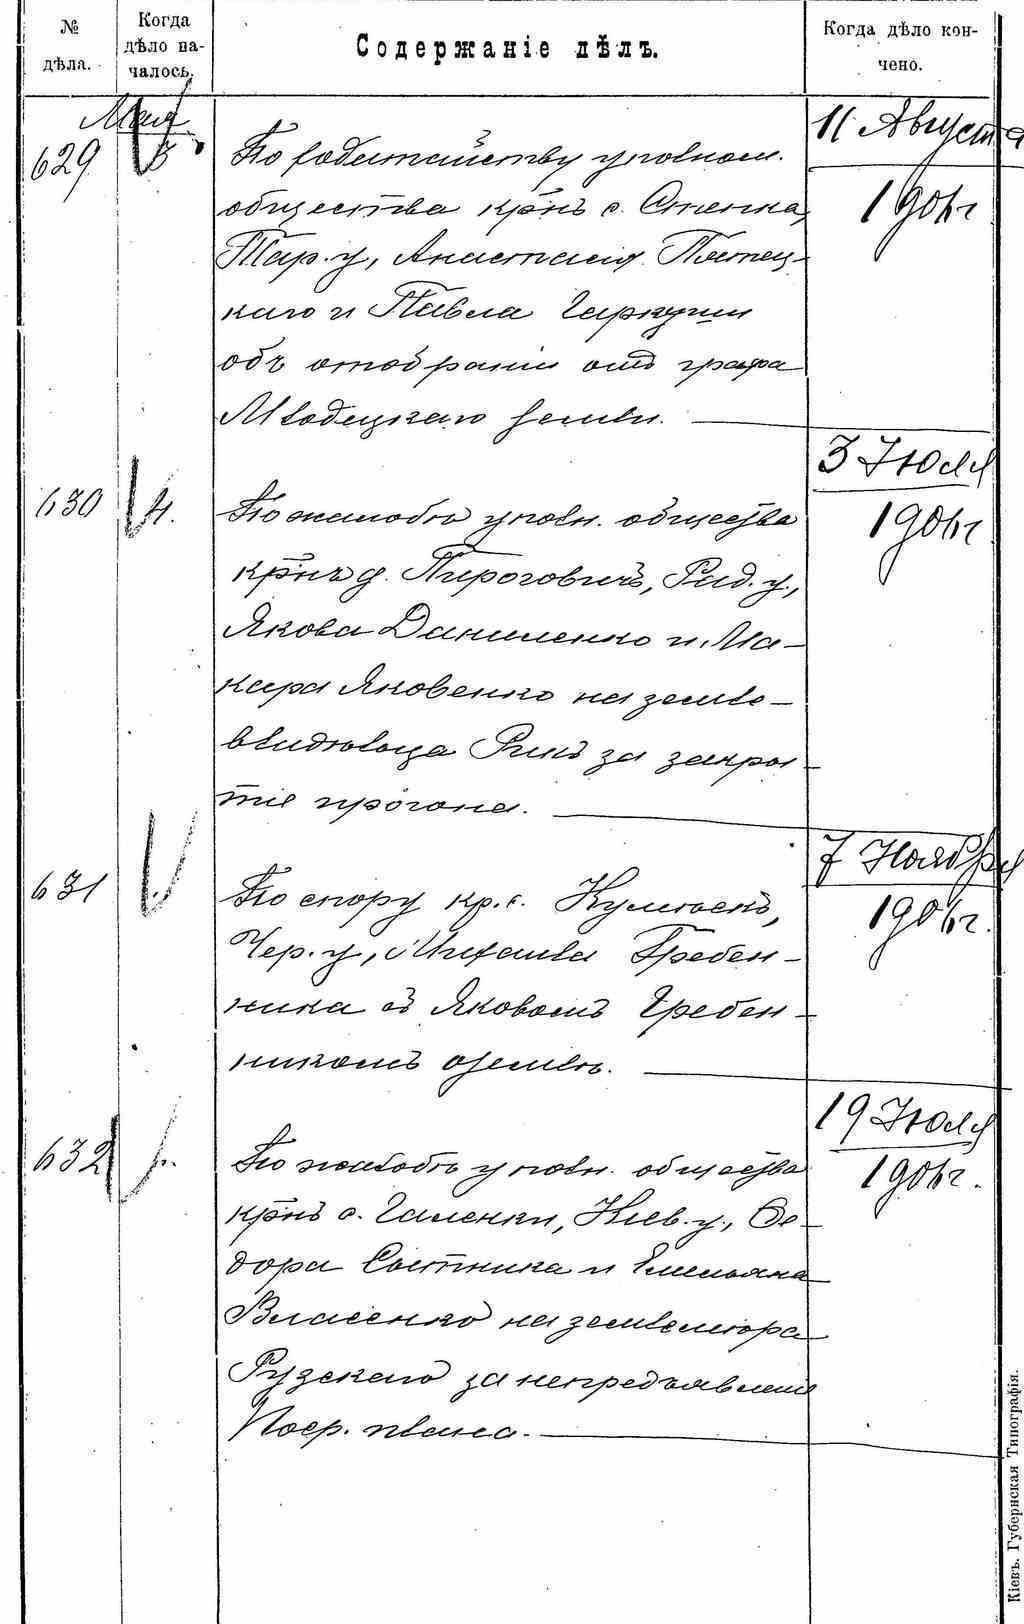 № дѣла.
Когда дѣло на-
чалось.
Содержаніе дѣлъ.
Когда дѣло кон-
чено.
Мая
629
3
По ходатайству уполном.
общества крнъ с. Степка,
Тар. у, Анастасія Пятец-
каго и Павла Гаркуши
объ отобраніи отъ графа
Млодецкаго земли.
11 Августа
1901 г
630
4.
По жалобѣ уполн. общества
крнъ д. Пироговичъ, Рад. у.,
Якова Даниленко и Ма-
кара Яковенко на земле-
владѣльца Рикъ за закры-
тіе прогона.
3 Іюля
1901 г
631
По спору кр. с.
Чер. у, Михаила Гребен-
ника съ Яковомъ Гребен-
никомъ о землѣ.
7 Ноября
190 г.
632
По жалобѣ уполн. общества
крнъ с. Галенки, Кіев. у., Ѳе-
дора Сытника и Емельяна
Власенко на землемѣра
Рузскаго за непредъявленіе
Люстр. плана.
19 Іюля
1901 г.
Кіевъ. Губернская Типографія.